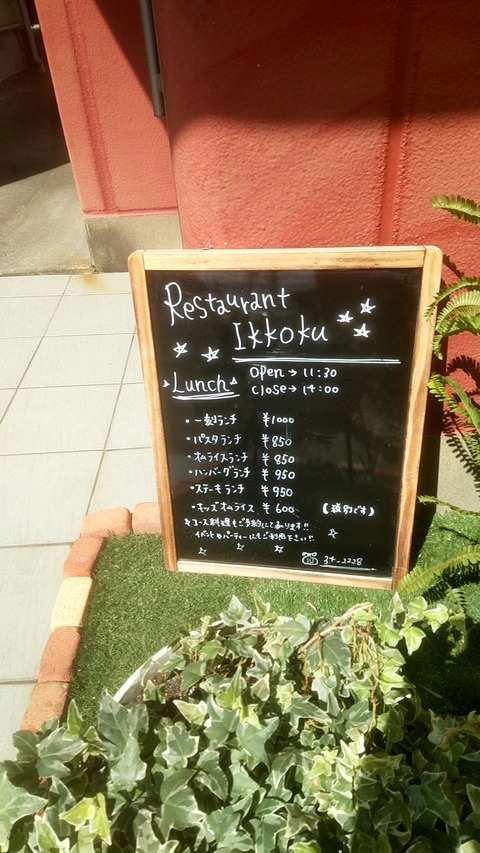 Restaurant
Ikkoku
Lunch
open→11:30
close→14:00
・一刻ランチ ¥1000
・パスタランチ ¥850
・オムライスランチ ¥850
・ハンバーグランチ ¥950
・ステーキランチ ¥950
・キッズオムライス ¥600 【税別です】
コース料理もご予約にてあります!!
イベントやパーティーにもご利用下さい!!
34-2228